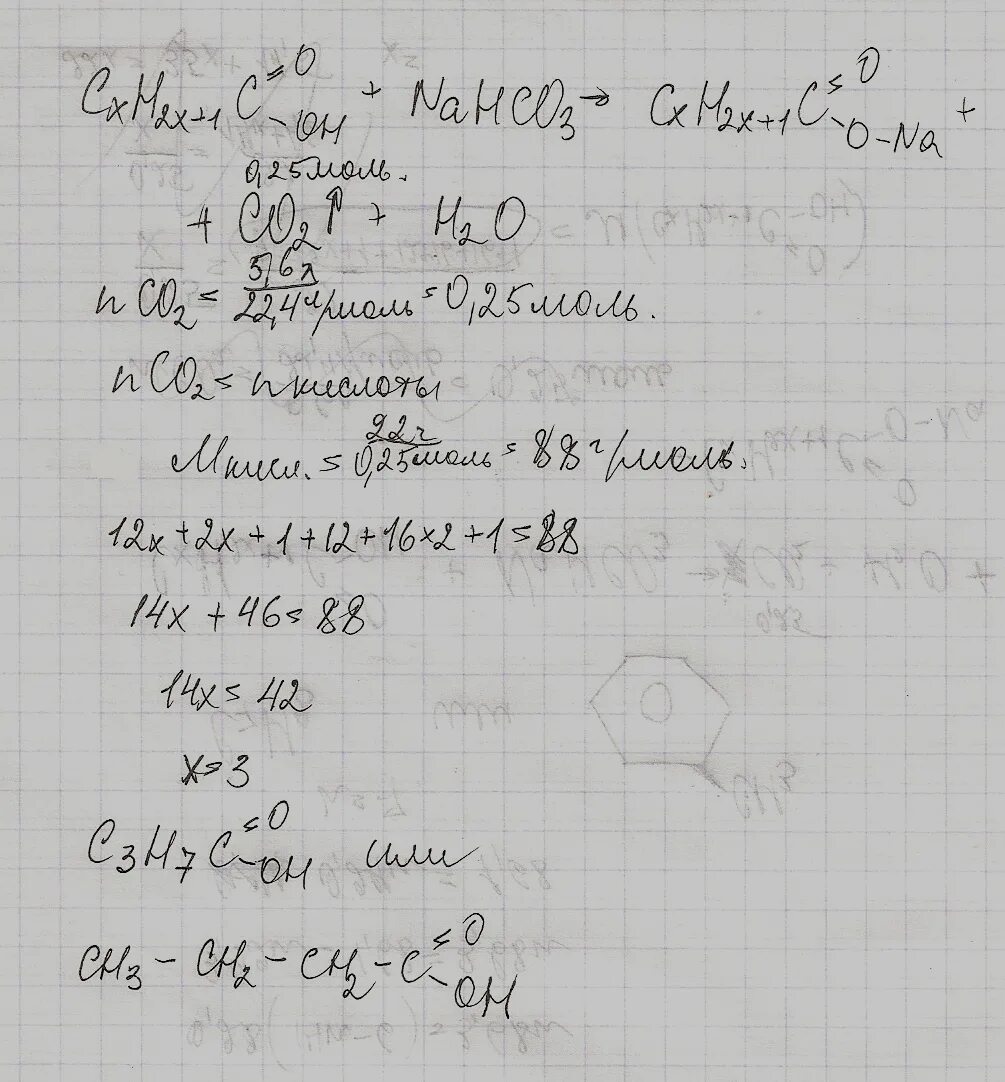 CxH2x+1 C=O-OH + NaHCO3 → CxH2x+1 C=O-O-Na +
0,25 моль.
+ CO2↑ + H2O
n CO2 = 5,6 л / 22,4 л/моль = 0,25 моль.
n CO2 = n кислоты
M кисл. = 22 г / 0,25 моль = 88 г/моль.
12x + 2x + 1 + 12 + 16×2 + 1 = 88
14x + 46 = 88
14x = 42
x = 3
C3H7 C=O-OH или
CH3 - CH2 - CH2 - C=O-OH